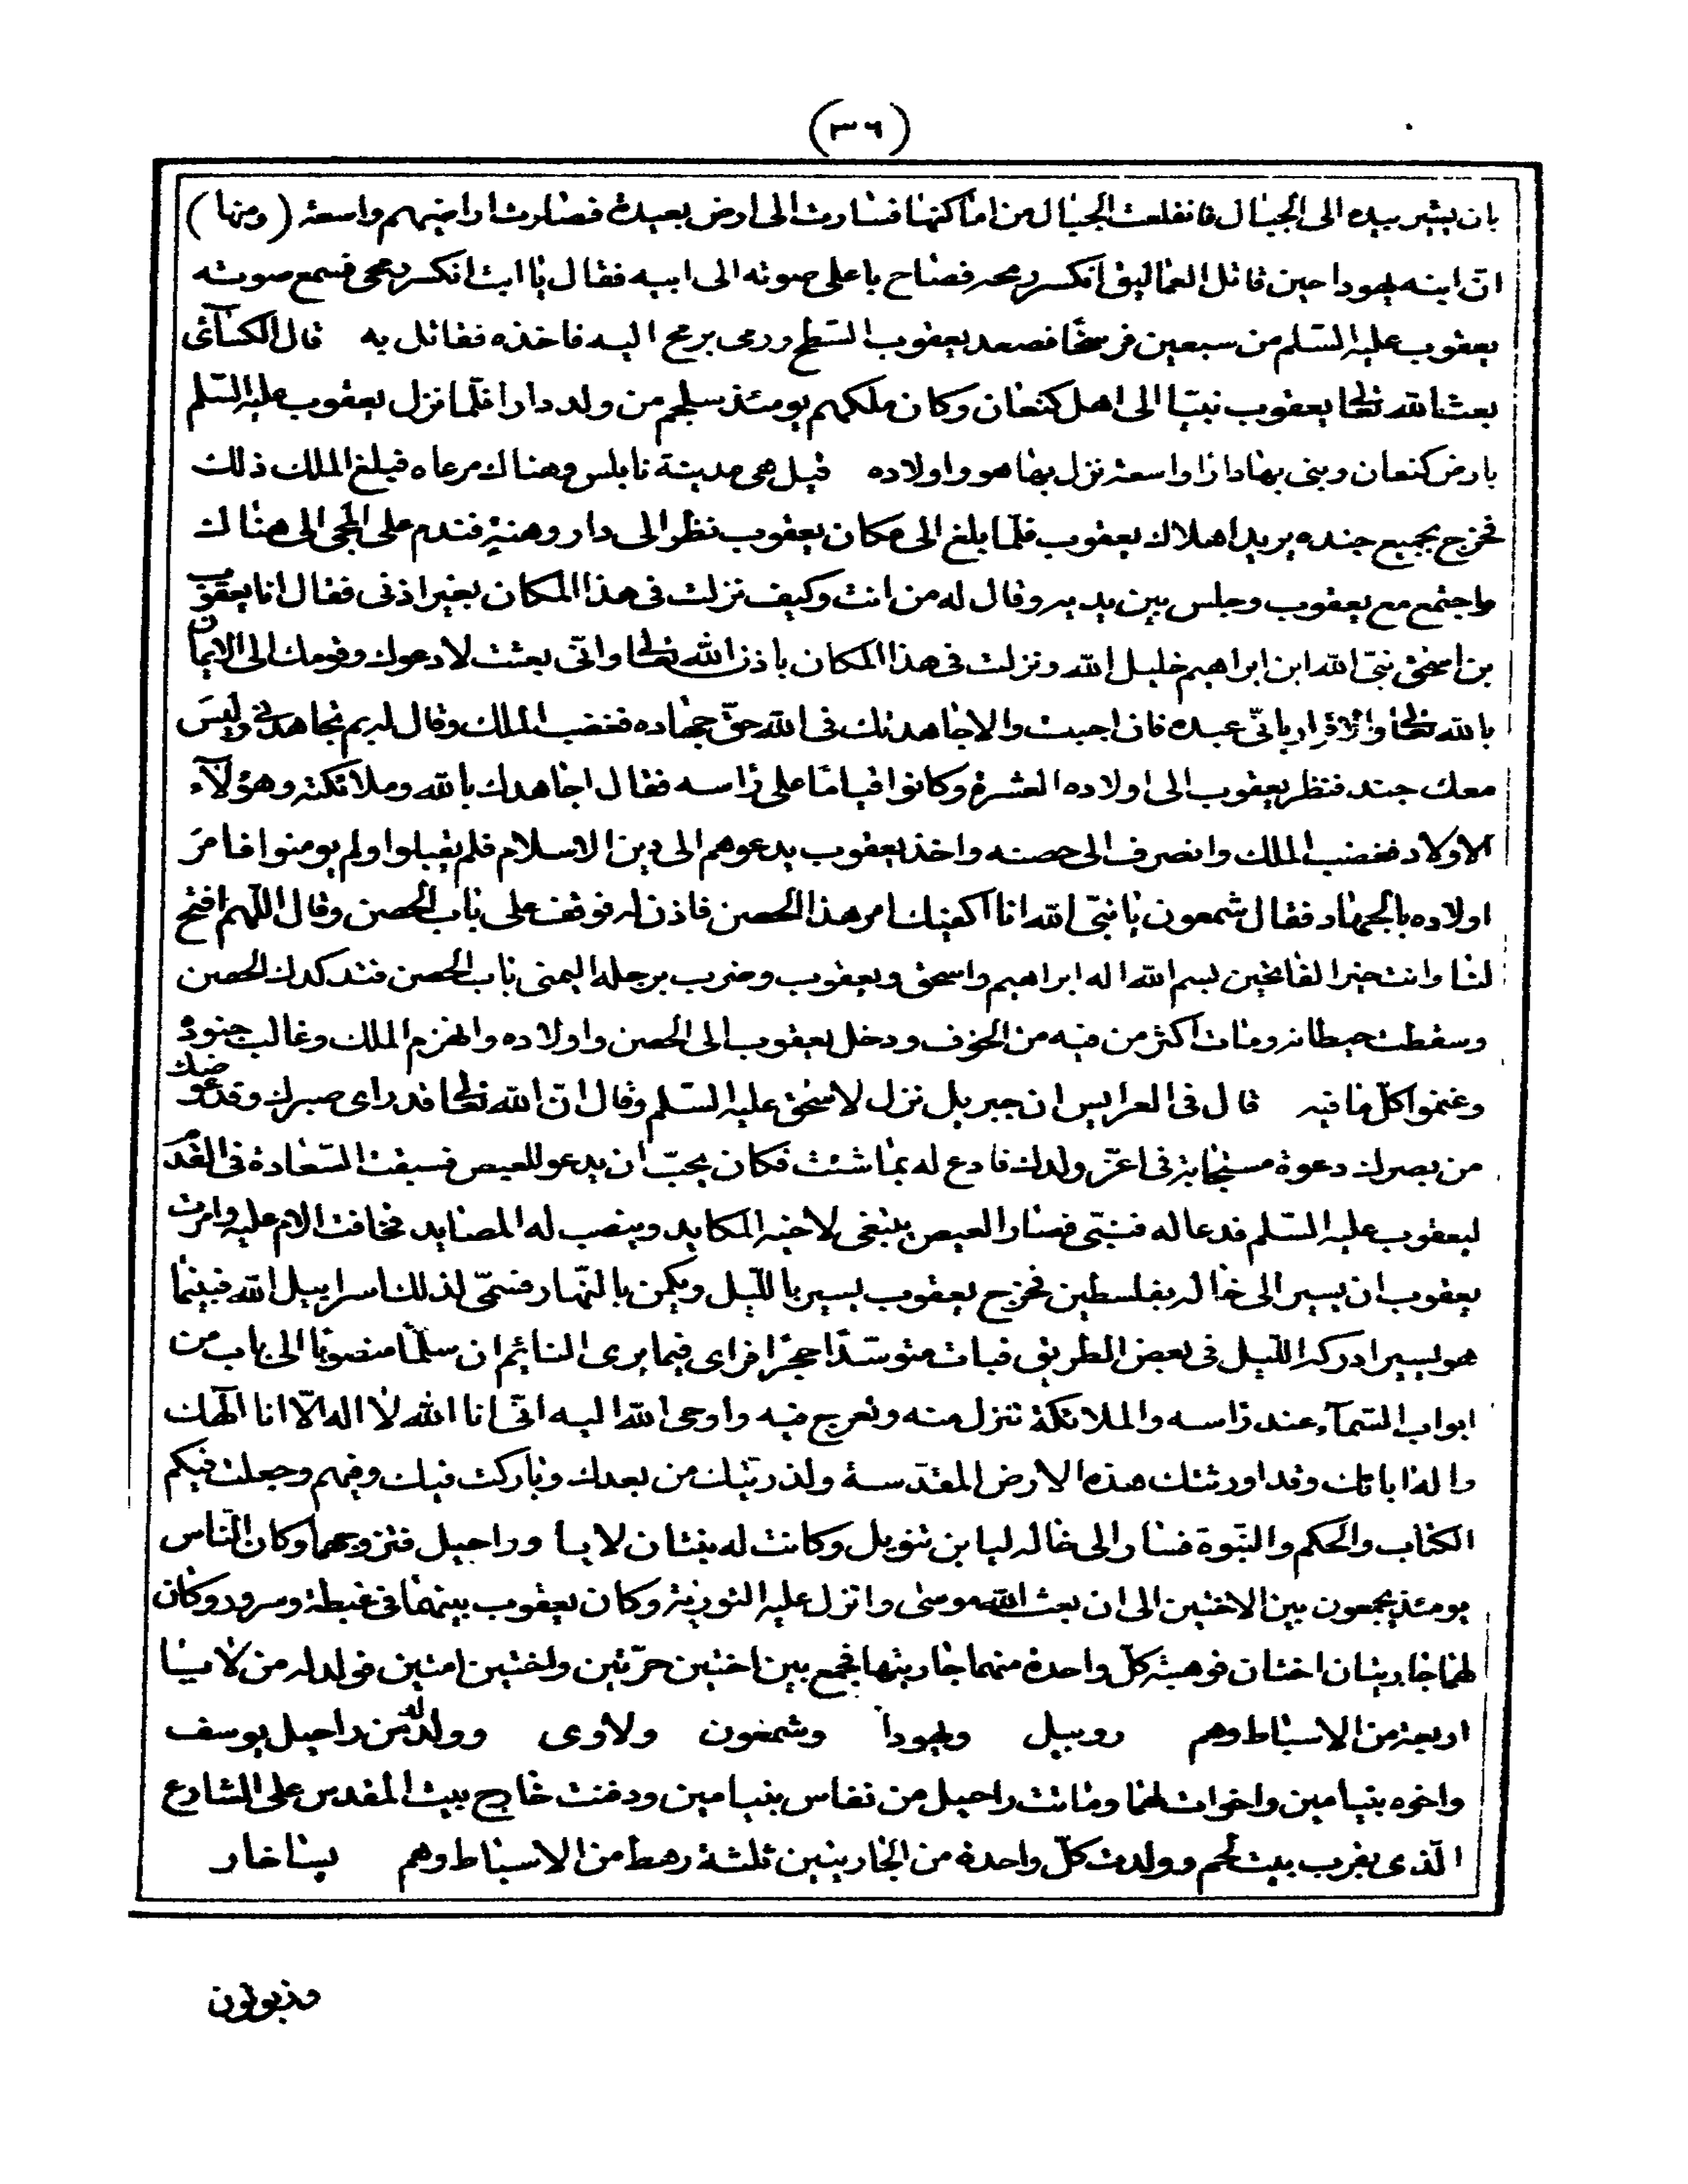 (٣٦)
بان يشير بيده الى الجبال فانقلعت الجبال من اماكنها فسارت الى ارض بعيدة فصارت اراضيهم واسعة (ومنها)
انّ ابنه يهودا حين قاتل العماليق انكسر رمحه فصاح باعلى صوته الى ابيه فقال يا ابت انكسر رمحى فسمع صوته
يعقوب عليه السّلم من سبعين فرسخًا فصعد يعقوب السّطح ورمى برمح اليه فاخذه فقاتل به قال الكسآئى
بعث الله تعالى يعقوب نبيّا الى اهل كنعان وكان ملكهم يومئذ سليم من ولد دارا فلمّا نزل يعقوب عليه السّلم
بارض كنعان وبنى بها دارا واسعة نزل بها هو واولاده قيل هى مدينة نابلس وهناك مرعاه فبلغ الملك ذلك
فخرج بجميع جنده يريد اهلاك يعقوب فلمّا بلغ الى مكان يعقوب نظر الى دار وهنية فندم على المجئ الى هناك
واجتمع مع يعقوب وجلس بين يديه وقال له من انت وكيف نزلت فى هذا المكان بغير اذنى فقال انا يعقوب
بن اسحق نبىّ الله ابن ابراهيم خليل الله ونزلت فى هذا المكان باذن الله تعالى وانّى بعثت لادعوك وقومك الى الايمان
بالله تعالى والاقرار بانّى عبده فان اجبت والا جاهدتك فى الله حقّ جهاده فغضب الملك وقال له بم تجاهدنى وليس
معك جند فنظر يعقوب الى اولاده العشرة وكانوا قيامًا على راسه فقال اجاهدك بالله وملائكته وهؤلآء
الاولاد فغضب الملك وانصرف الى حصنه واخذ يعقوب يدعوهم الى دين الاسلام فلم يقبلوا ولم يومنوا فامر
اولاده بالجهاد فقال شمعون يا نبىّ الله انا اكفيك امر هذا الحصن فاذن له فوقف على باب الحصن وقال اللّهم افتح
لنا وانت خير الفاتحين بسم الله اله ابراهيم واسحق ويعقوب وضرب برجله اليمنى باب الحصن فتدكدك الحصن
وسقطت حيطانه ومات اكثر من فيه من الخوف ودخل يعقوب الى الحصن واولاده وانهزم الملك وغالب جنوده
وغنموا كلّ ما فيه قال فى العرايس ان جبريل نزل لاسحق عليه السّلم وقال انّ الله تعالى قد راى صبرك وقد عوضك
من بصرك دعوة مستجابة فى اعزّ ولدك فادع له بما شئت فكان يحبّ ان يدعو للعيص فسبقت السّعادة فى القدم
ليعقوب عليه السّلم فدعا له فنبّى فصار العيص يبتغى لاخيه المكايد وينصب له المصايد فخافت الام عليه وامرت
يعقوب ان يسير الى خاله بفلسطين فخرج يعقوب يسير بالليل ويكمن بالنّهار فسمّى لذلك اسراييل الله فبينما
هو يسير ادركه الليل فى بعض الطريق فبات متوسّدًا حجرًا فراى فيما يرى النائم ان سلّمًا منصوبًا الى باب من
ابواب السّمآء عند راسه والملائكة تنزل منه وتعرج فيه واوحى الله اليه انّى انا الله لا اله الّا انا الهك
واله اباتك وقد اورثتك هذه الارض المقدسة ولذرّيتك من بعدك وباركت فيك وفيهم وجعلت فيكم
الكتاب والحكم والنّبوة فسار الى خاله ليا بن ثنويل وكانت له بنتان لايا وراحيل فتزوجهما وكان النّاس
يومئذ يجمعون بين الاختين الى ان بعث الله موسى وانزل عليه التورية وكان يعقوب بينهما فى غبطة وسرور وكان
لهما جاريتان اختان فوهبته كلّ واحدة منهما جاريتها فجمع بين اختين حرّتين واختين امتين فولد له من لايا
اربعة من الاسباط وهم روبيل ويهودا وشمعون ولاوى وولد له من راحيل يوسف
واخوه بنيامين واخوات لهما وماتت راحيل من نفاس بنيامين ودفنت خارج بيت المقدس على الشارع
الّذى بقرب بيت لحم وولدت كلّ واحدة من الجاريتين ثلثة رهط من الاسباط وهم يساخار
وزبولون